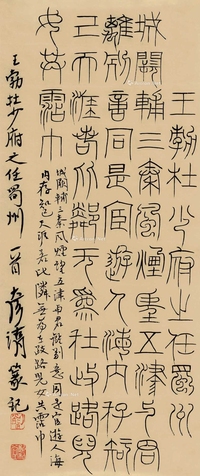 王勃杜少府之任蜀州
城闕輔三秦風煙望五津與君
離別意同是宦遊人海內存知
己天涯若比鄰無為在歧路兒
女共霑巾
城闕輔三秦風煙望五津与君離別意同是宦遊海
內存知己天涯若比鄰無為在歧路兒女共霑巾
王勃杜少府之任蜀州一首 篆記